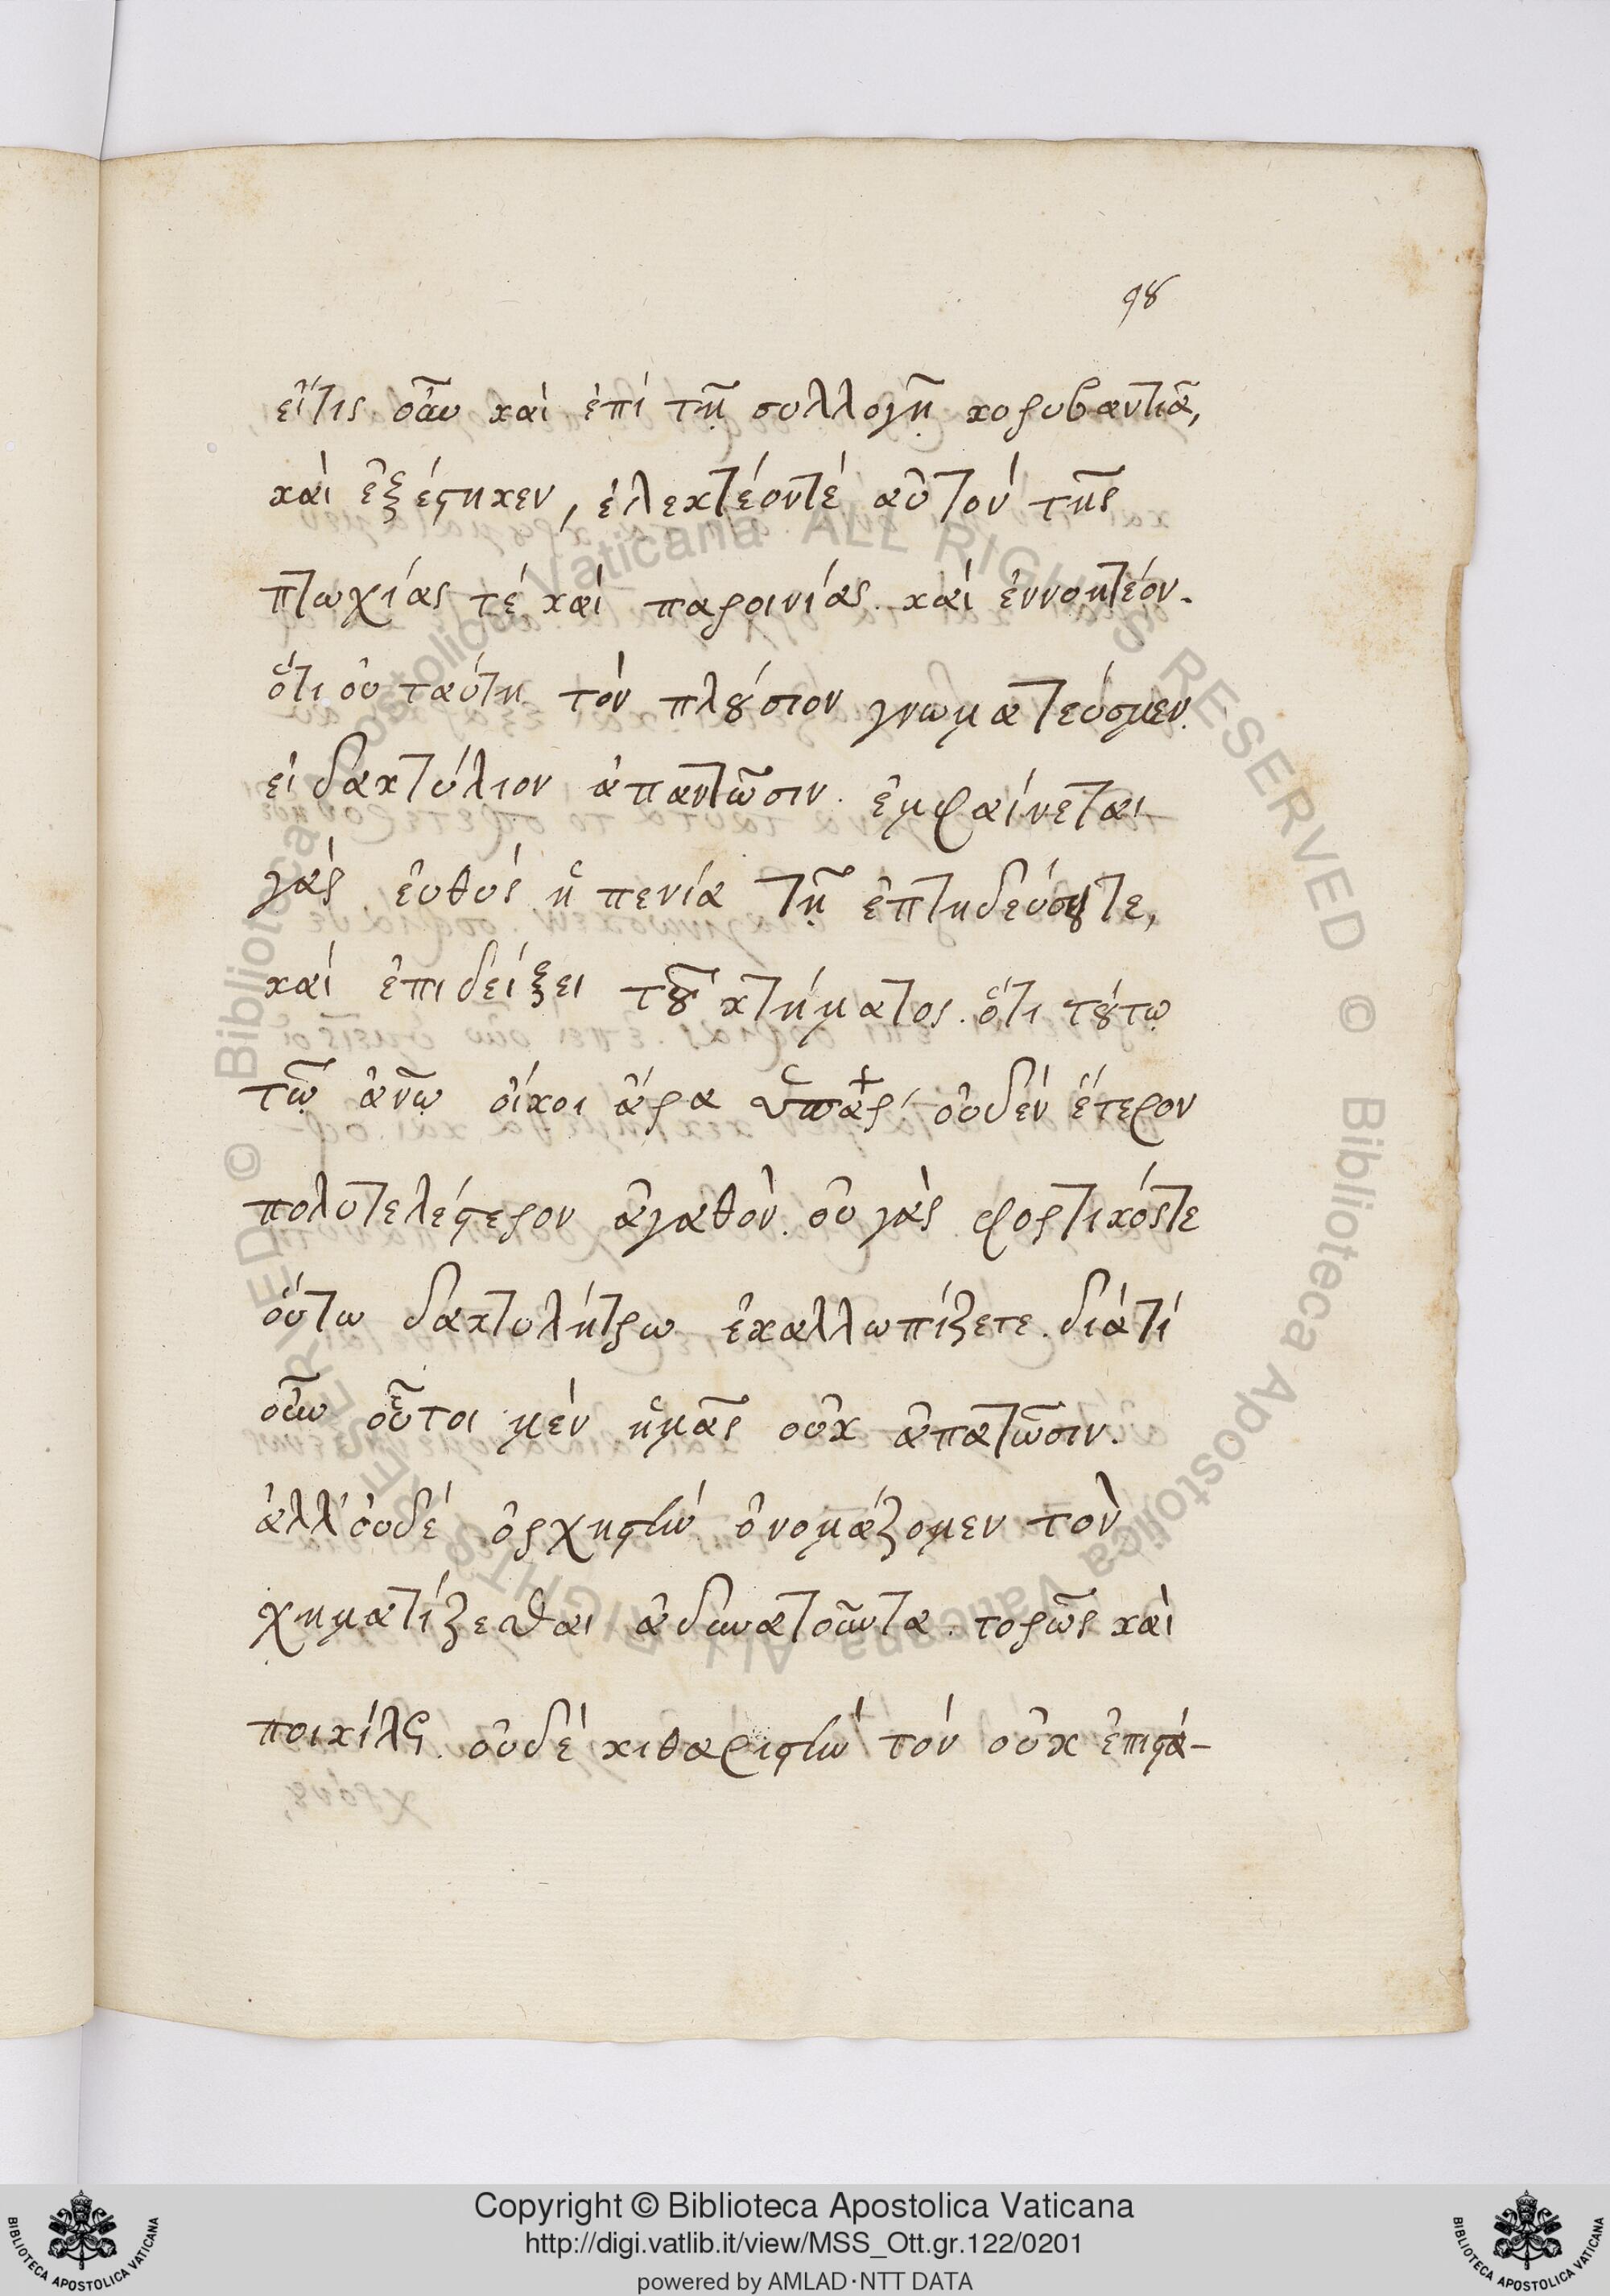 98
εἴτις οὖν καὶ ἐπὶ τῇ συλλογῇ κορυβαντιᾷ,
καὶ ἐξέστηκεν, ἐλεκτέοντέ αὐτὸν τῆς
πτωχίας τέ καὶ παροινίας. καὶ ἐννοητέον.
ὅτι οὐ ταύτη τὸν πλούσιον γνωματεύσμεν.
εἰ δακτύλιον ἀπαντῶσιν. ἐμφαίνεται
γὰρ εὐθὺς ἡ πενία τῇ ἐπτηδεύσουτε,
καὶ ἐπιδείξει τοῦ κτήματος. ὅτι τούτῳ
τῷ ἀνῷ οἴκοι ἄρα ὑπὰρ οὐδὲν ἕτερον
πολυτελέστερον ἀγαθὸν. οὐ γὰρ φορτικόςτε
οὕτω δακτυλήτρω ἐκαλλωπίζετε. διάτί
οὖν οὗτοι μὲν ἡμᾶς οὐκ ἀπατῶσιν.
ἀλλ' οὐδὲ ὀρχηστὴν ὀνομάζομεν τὸν
χηματίζεσθαι ἀδυνατοῦντα. τορῶς καὶ
ποικίλς. οὐδὲ κιθαριστὴν τὸν οὐκ ἐπιστά-
Copyright © Biblioteca Apostolica Vaticana
http://digi.vatlib.it/view/MSS_Ott.gr.122/0201
powered by AMLAD·NTT DATA
BIBLIOTECA APOSTOLICA VATICANA
BIBLIOTECA APOSTOLICA VATICANA